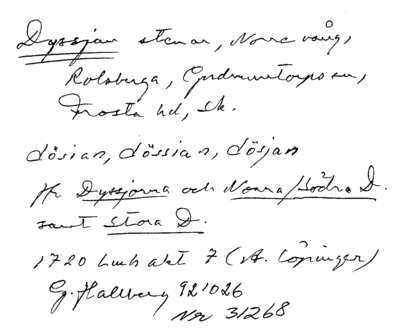 Dyssjan stenar, Norrevång,
Rolsberga, Gudmuntorps sn,
Frosta hd, Sk.
dösian, dössian, dösjan
Jfr Dyssjorna och Norra/Södra D.
samt Stora D.
1720 lmh akt 7 (A. Löninger)
G. Hallberg 921026
Nr 31268